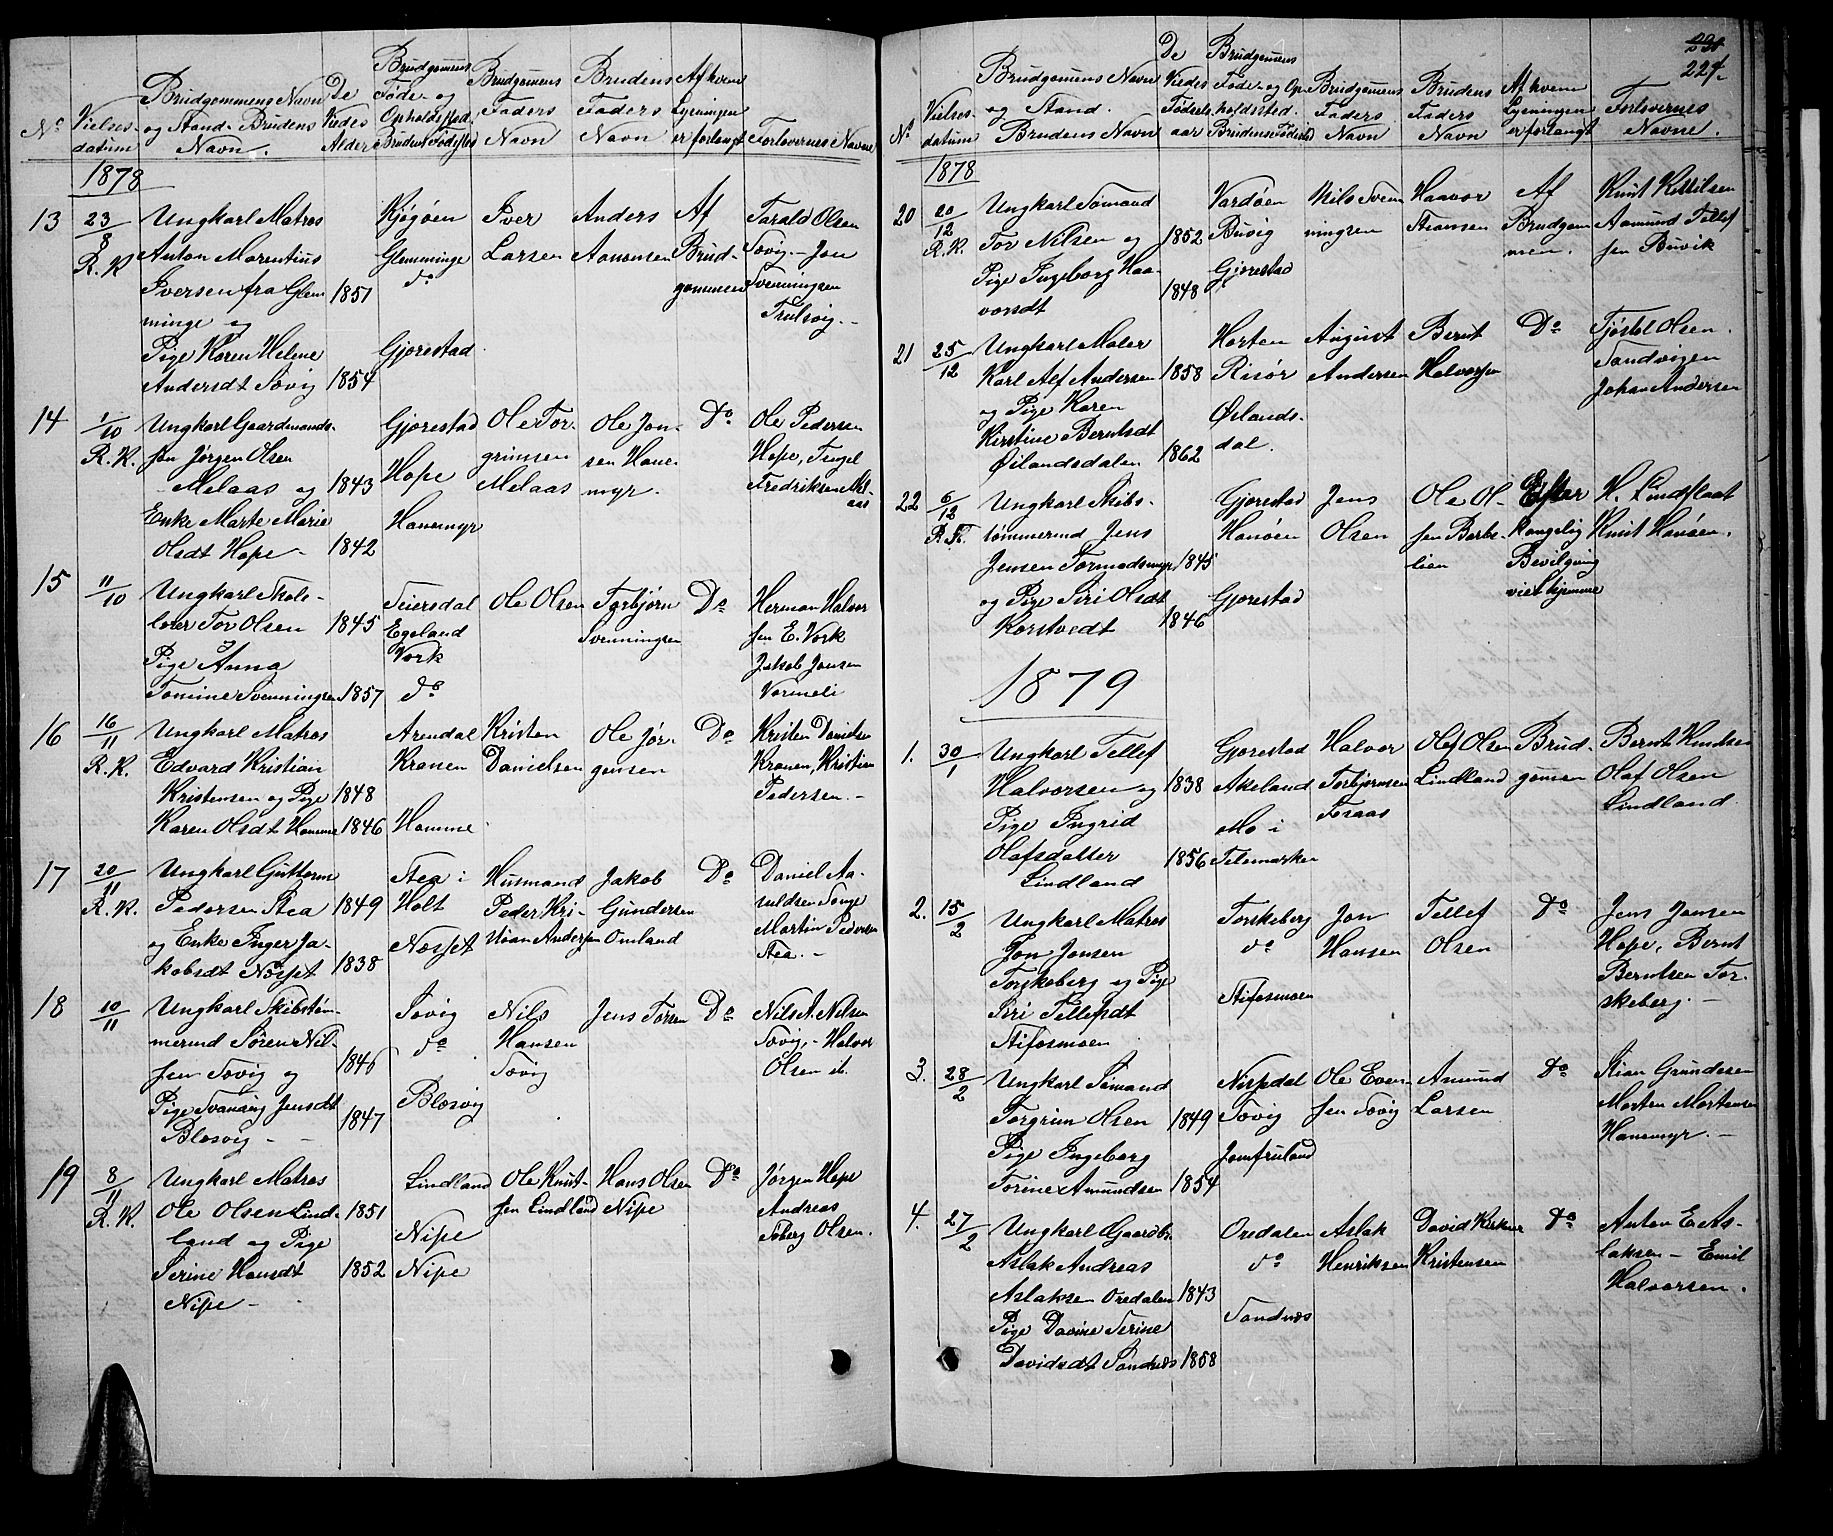 No
Vielses-
datum
Brudgommens Navn
og Stand - Brudens
Navn.
De
Viedes
Alder
Brudgomens
Føde- og
Opholdssted,
Brudens Fødested
Brudgomens
Faders
Navn
Brudens
Faders
Navn
Af hvem
Lysningen
er forlangt
Forlovernes Navne
1878
13
23/8
R. K
Ungkarl Matros
Anton Marentius
Iversen fra Glem
minge og
Pige Karen Helene
Andersdt Søvig
1851
1854
Kjøgøen
Glemminge
do
Gjerestad
Iver
Larsen
Anders
Aanonsen
Af
Brud-
gommen
Tarald Olsen
Søvig - Jon
Svenningsen
Trulsvig. -
14
1/10
R. K.
Ungkarl Gaardmands-
søn Jørgen Olsen
Melaas og
Enke Marte Marie
Olsdt Hope -
1843
1842
Gjerestad
Hope
Hanemyr
Ole Tor-
grimsen
Melaas
Ole Jon-
sen Hane-
myr.
Do
Ole Pedersen
Hope, Tengel
Fredriksen Mel-
aas
15
11/10
Ungkarl Skole-
lærer Tor Olsen
Pige Anna
Tomine Svenningsen
1845
1857
Seiersdal
Egeland
Vork
do
Ole Olsen
Torbjørn
Svenningsen
Do
Herman Halvor
sen E. Vork
Jakob Jensen
Vormeli
16
16/11
R. K.
Ungkarl Matros
Edvard Kristian
Kristensen og Pige
Karen Olsdt Homme
1848
1846
Arendal
Kranen
Homme.
Kristen
Danielsen
Ole Jør-
gensen
Do
Kristen Danielsen
Kranen, Kristian
Pedersen. -
17
20/11
R. K.
Ungkarl Guttorm
Pedersen Stea
og Enke Inger Ja-
kobsdt Næsset
1849
1838
Stea i
Holt
Næsset
Husmand
Peder Kri-
stian Andersen
Jakob
Gundersen
Omland
Do
Daniel Aa-
suldsen Songe
Martin Pedersen
Stea. -
18
10/11
Ungkarl Skibstøm-
mermd Søren Nil-
sen Søvig og
Pige Svanaug Jensdt
Blæsvig -
1846
1847
Søvig
do
Blæsvig
Nils
Hansen
Søvig
Jens Torsen
Do
Nils A. Nilsen
Søvig, - Halvor
Olsen ib.
19
8/11
R. K.
Ungkarl Matros
Ole Olsen Lind-
land og Pige
Serine Hansdt
Nipe -
1851
1852
Lindland
Nipe
Nipe
Ole Knut-
sen Lindland
Hans Olsen
Nipe
Do
Jørgen Hope
Andreas
Olsen.
227
No
Vielses
datum
Brudgomens Navn
og Stand.
Brudens Navn
De
Viedes
Fødsels
aar
Brudgomens
Føde- og Op-
holdssted.
Brudens Fødested
Brudgomens
Faders
Navn
Brudens
Faders
Navn
Af hvem
Lysningen
er forlangt
Forlovernes
Navne.
1878
20
20/12
R. K.
Ungkarl Sømand
Tor Nilsen og
Pige Ingeborg Haa-
vorsdt
1852
1848
Vardøen
Buvig
Gjerestad
Nils Sven
ningsen
Haavor
Steansen
Af
Brudgom
men.
Knut Kittilsen
Aamund Tellef
sen Buvik
21
25/12
Ungkarl Maler
Karl Alf Andersen
og Pige Karen
Kirstine Berntsdt
Øilandsdalen
1858
1862
Horten
Risør
Øilands-
dal.
August
Andersen
Bernt
Halvorsen
Do
Tjøstel Olsen.
Sandvigen
Johan Andersen
22
6/12
R. K.
Ungkarl Skibs-
tømmermd Jens
Jensen Tormodsmyr
og Pige Siri Olsdt
Korstvedt
1845
1846
Gjerestad
Hanøen
Gjerestad
Jens
Olsen
Ole Ol-
sen Barbo-
lien
Efter
Kongelig
Bevilgning
viet hjemme
H. Lindstaat
Knut Hanøen.
1879
1.
30/1
Ungkarl Tellef
Halvorsen og
Pige Ingrid
Olafsdatter
Lindland
1838
1856
Gjerestad
Akeland
Mo i
Telemarken
Halvor
Torbjørnsen
Fosaas
Olaf Olsen
Lindland
Brud-
gomen
Bernt Knudsen
Olaf Olsen
Lindland.
2.
15/2
Ungkarl Matros
Jon Jonsen
Torskeberg og Pige
Siri Tellefsdt
Stifosmoen
Torskeberg
do
Stifosmoen
Jon
Hansen
Tellef
Olsen
Do
Jens Jensen
Hope, Bernt
Berntsen Tor-
skeberg. -
3.
28/2
Ungkarl Sømand
Torgrim Olsen
Pige Ingeborg
Torine Amundsen
1849
1854
Nissedal
Søvig
Jomfruland
Ole Even-
sen Søvig
Amund
Larsen
Do
Stian Gundersen
Morten Mortensen
Hanemyr. -
4.
27/2
Ungkarl Gaardbr.
Aslak Andreas
Aslaksen Oredalen
Pige Davine Serine
Davidsdt Sandnæs
1843
1858
Oredalen
do
Sandnæs
Aslak
Henriksen
David Kirkner
Kristensen
Do
Anton E. As-
laksen - Emil
Halvorsen.